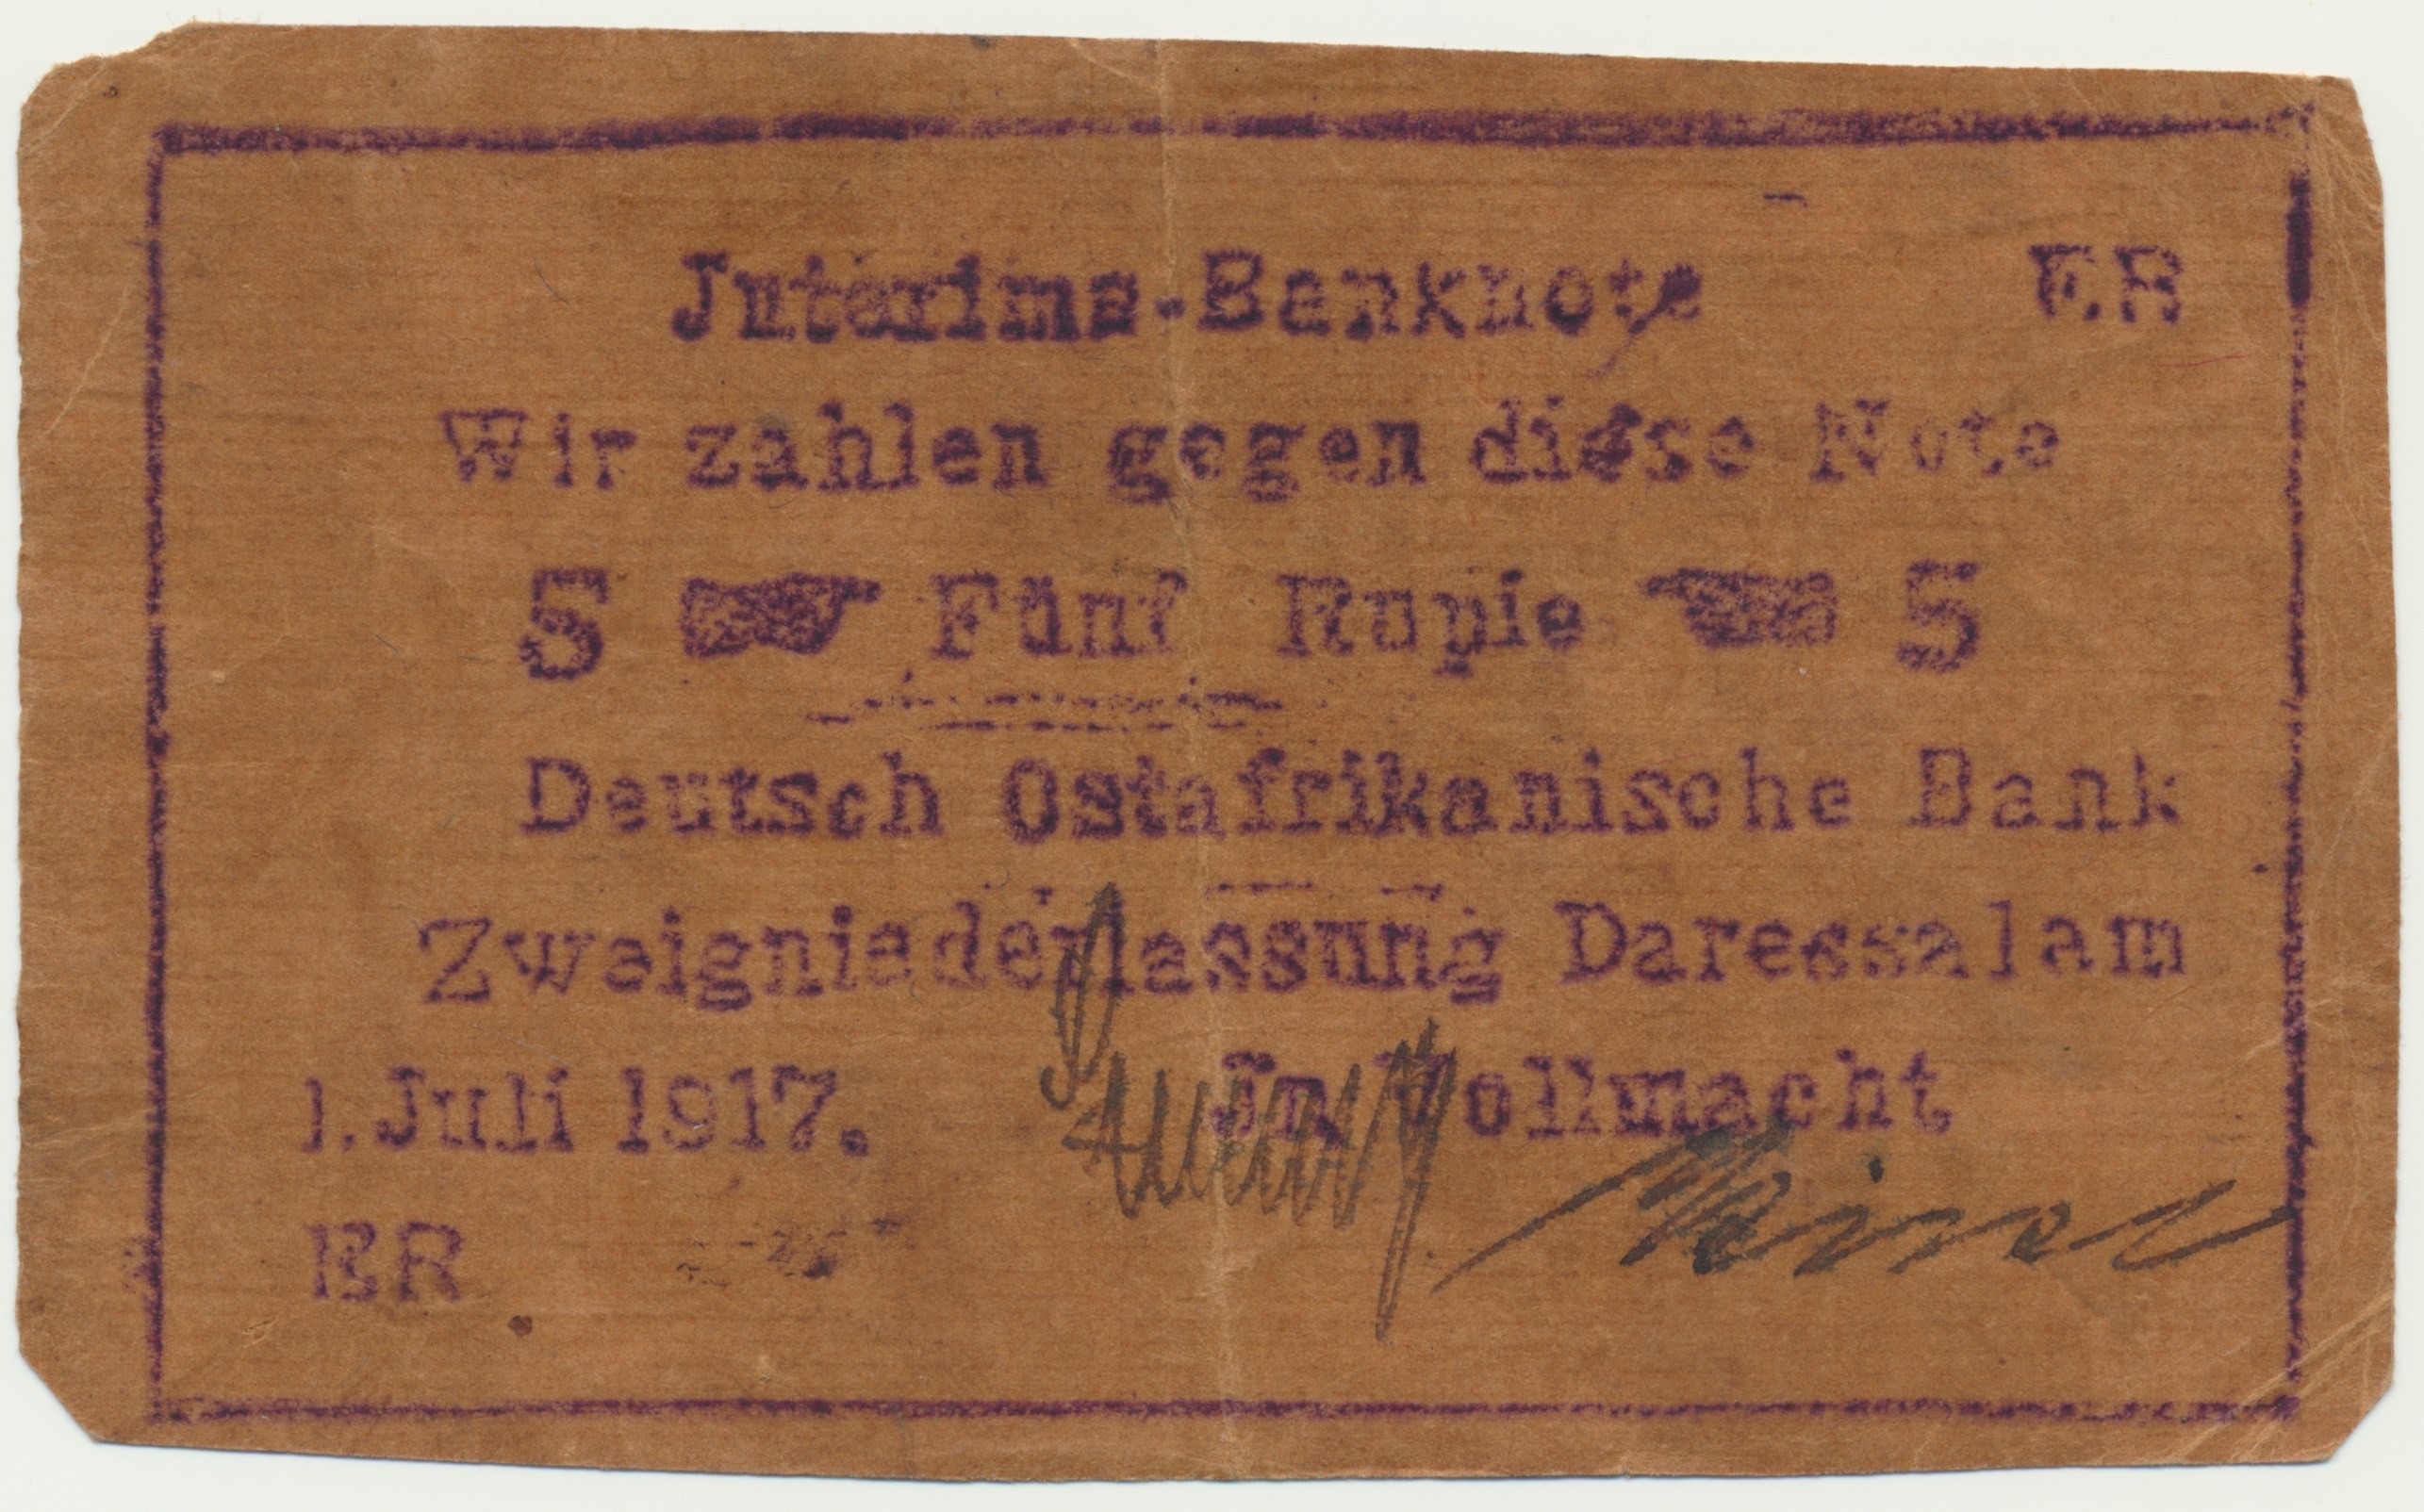 Jnterims-Banknote ER
Wir zahlen gegen diese Note
5 Fünf Rupie 5
Deutsch Ostafrikanische Bank
Zweigniederlassung Daressalam
1. Juli 1917. Jn Vollmacht
ER